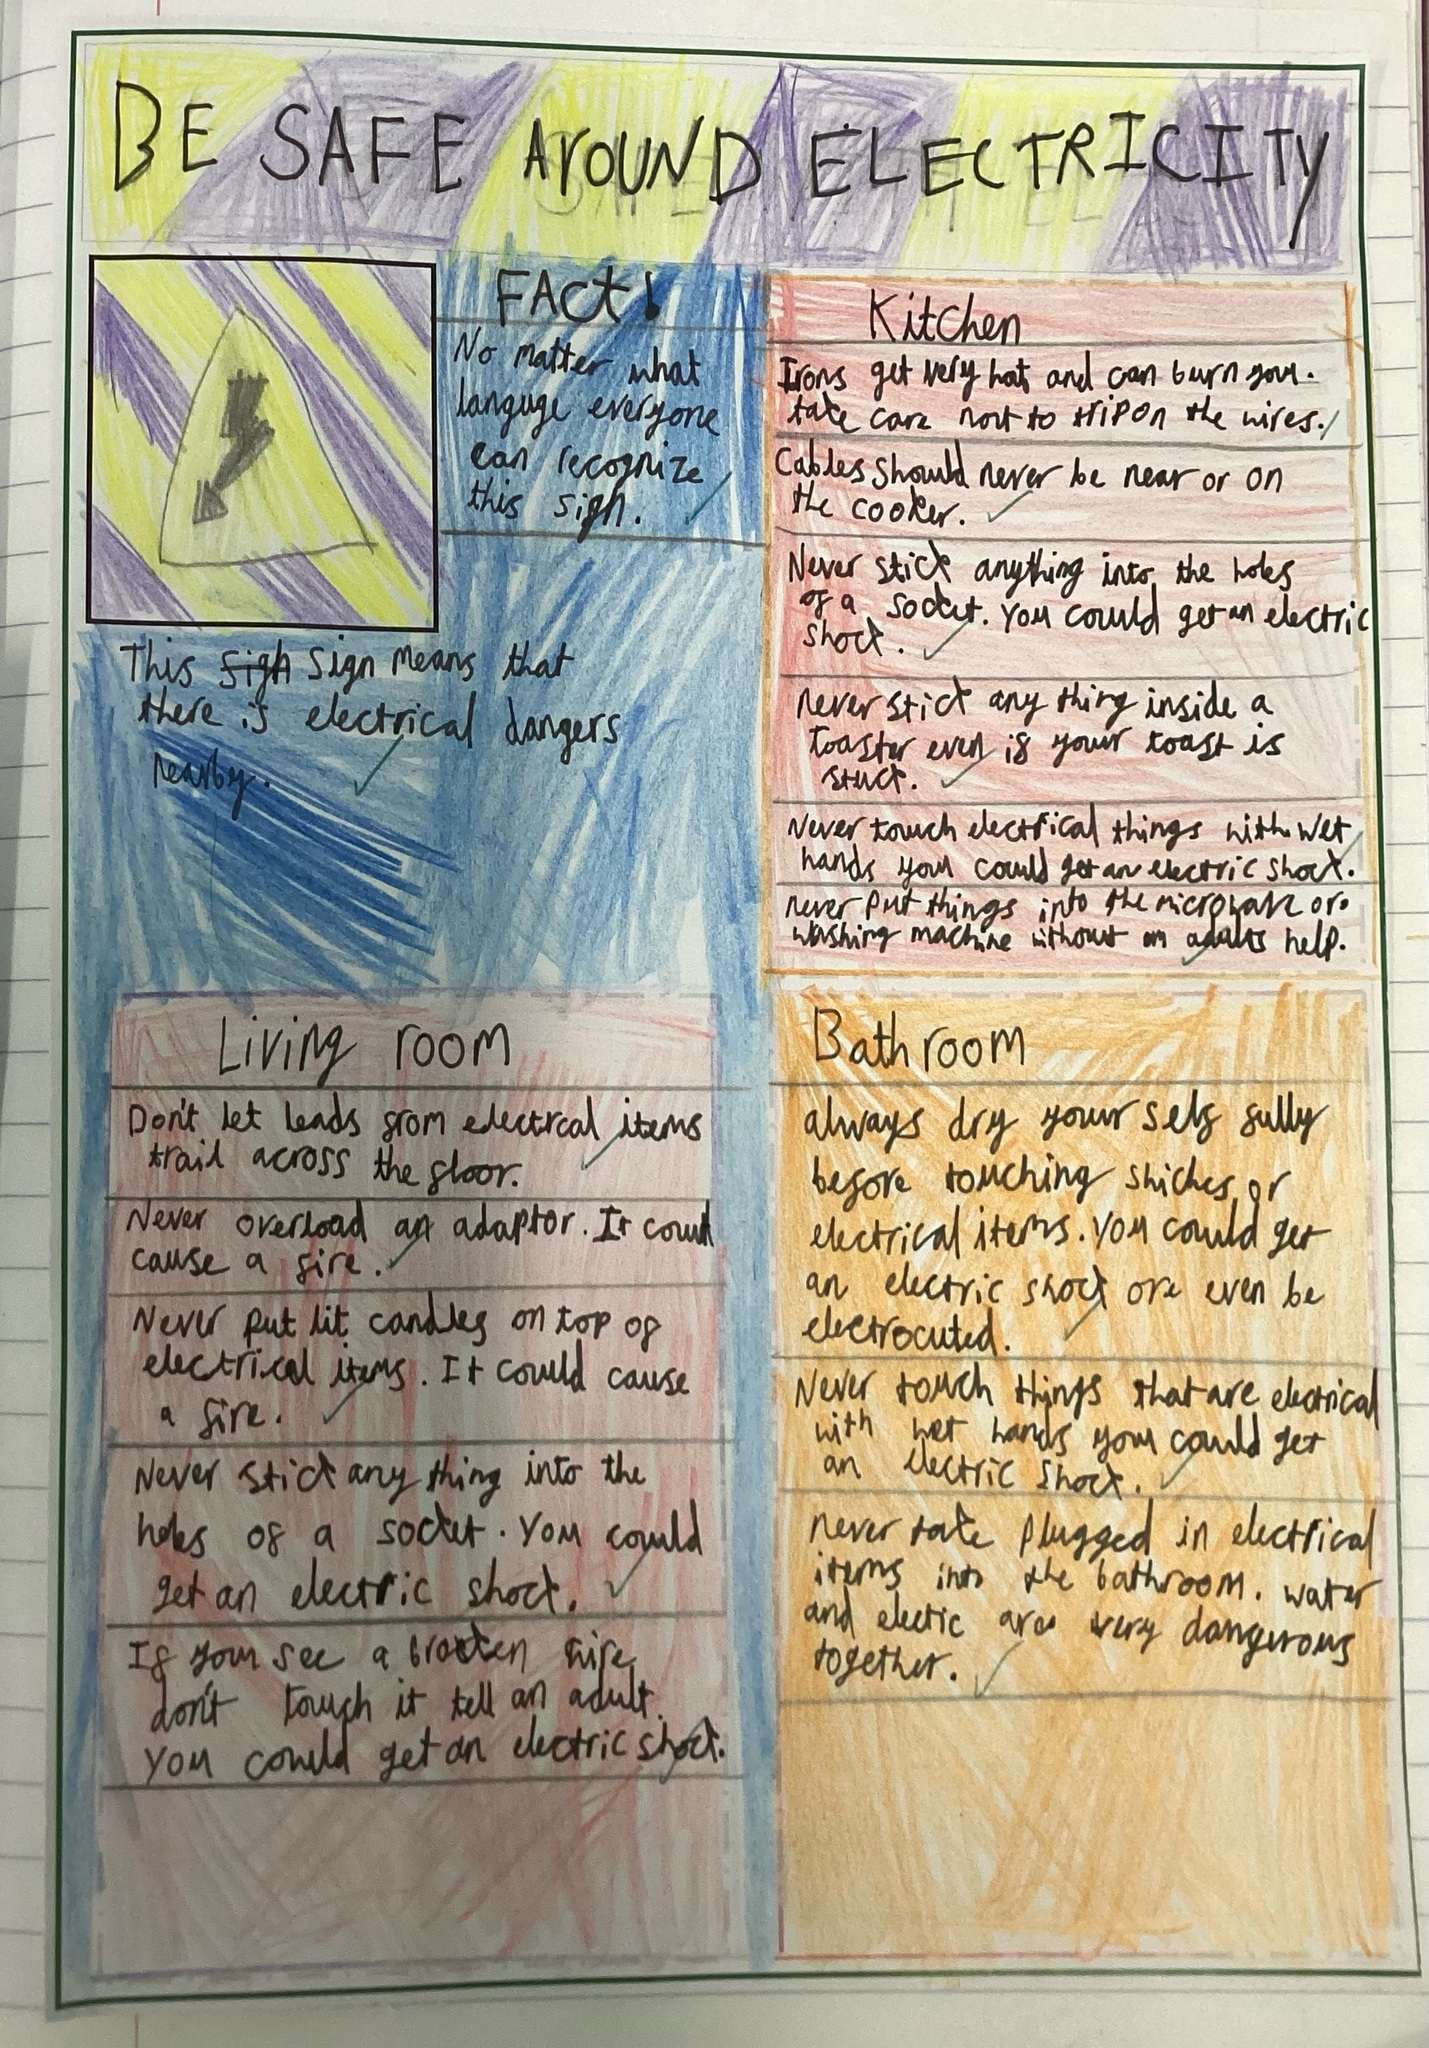 BE SAFE ArOUND ELECTRICITY
FAct!
No matter what
languge everyone
can recognize
this sign.
This sigh Sign means that
there is electrical dangers
nearby.
Kitchen
Irons get very hot and can burn you.
take care not to trip on the wires.
Cables Should never be near or on
the cooker.
Never stick anything into the holes
of a socket. You could get an electric
shock.
never stick any thing inside a
toaster even if your toast is
stuck.
Never touch electrical things with wet
hands you could get an electric shock.
never put things into the microwave or
washing machine without an adults help.
Living room
Don't let leads from electrcal items
trail across the floor.
Never overload an adaptor. It could
cause a fire.
Never put lit candles on top of
electrical items. It could cause
a fire.
Never stick any thing into the
holes of a socket. You could
get an electric shock.
If you see a broken wire
don't touch it tell an adult.
You could get an electric shock.
Bathroom
always dry your self fully
before touching shiches or
electrical items. You could get
an electric shock ore even be
electrocuted.
Never touch things that are electrical
with wet hands you could get
an electric shock.
never take plugged in electrical
items into the bathroom. water
and electic are very dangerous
together.